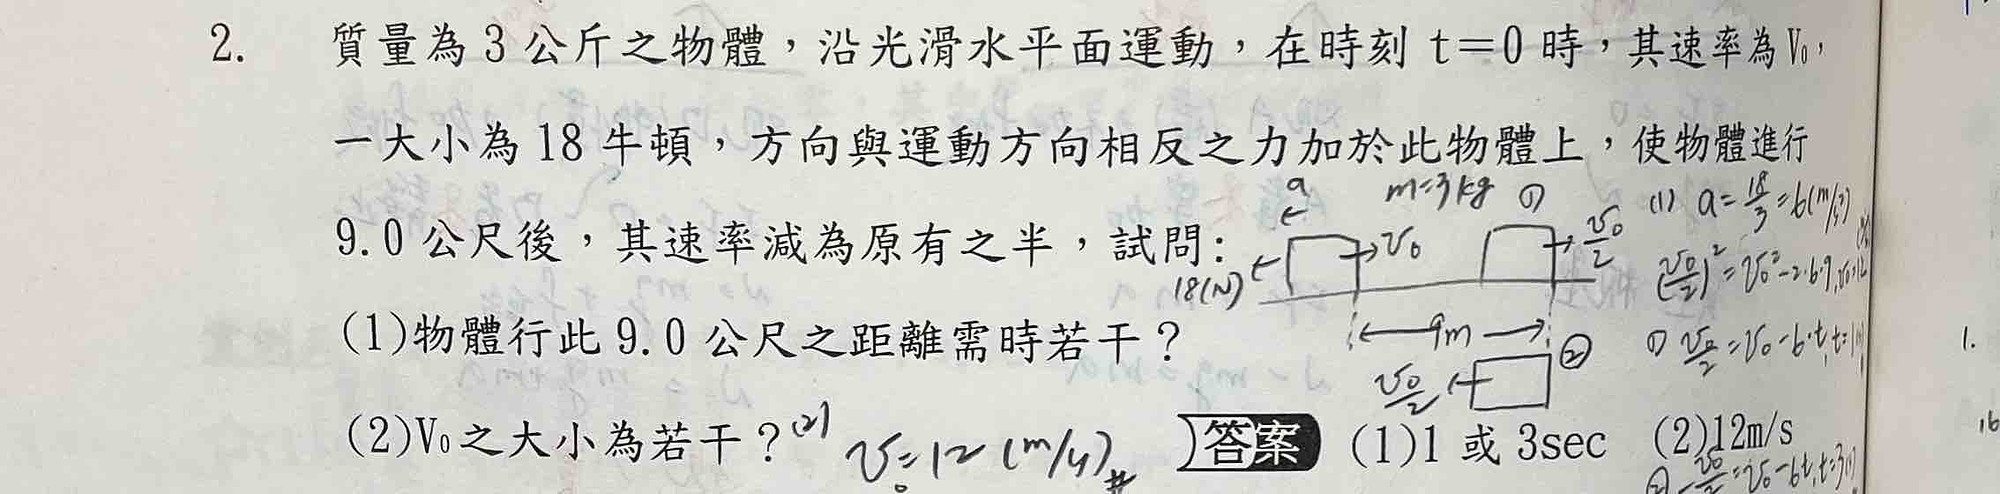 2. 質量為 3 公斤之物體，沿光滑水平面運動，在時刻 t＝0 時，其速率為 V₀，
一大小為 18 牛頓，方向與運動方向相反之力加於此物體上，使物體進行
a m=3kg ① (1) a=18/3=6(m/s²)
9.0 公尺後，其速率減為原有之半，試問：
18(N) v₀ v₀/2 (v₀/2)²=v₀²-2·6·9, v₀=12
(1)物體行此 9.0 公尺之距離需時若干？
9m ② ① v₀/2=v₀-6·t, t=1
v₀/2
(2)V₀之大小為若干？ (2) v₀=12 (m/s)# 答案 (1)1 或 3sec (2)12m/s
② -v₀/2=v₀-6t, t=3
1.
16